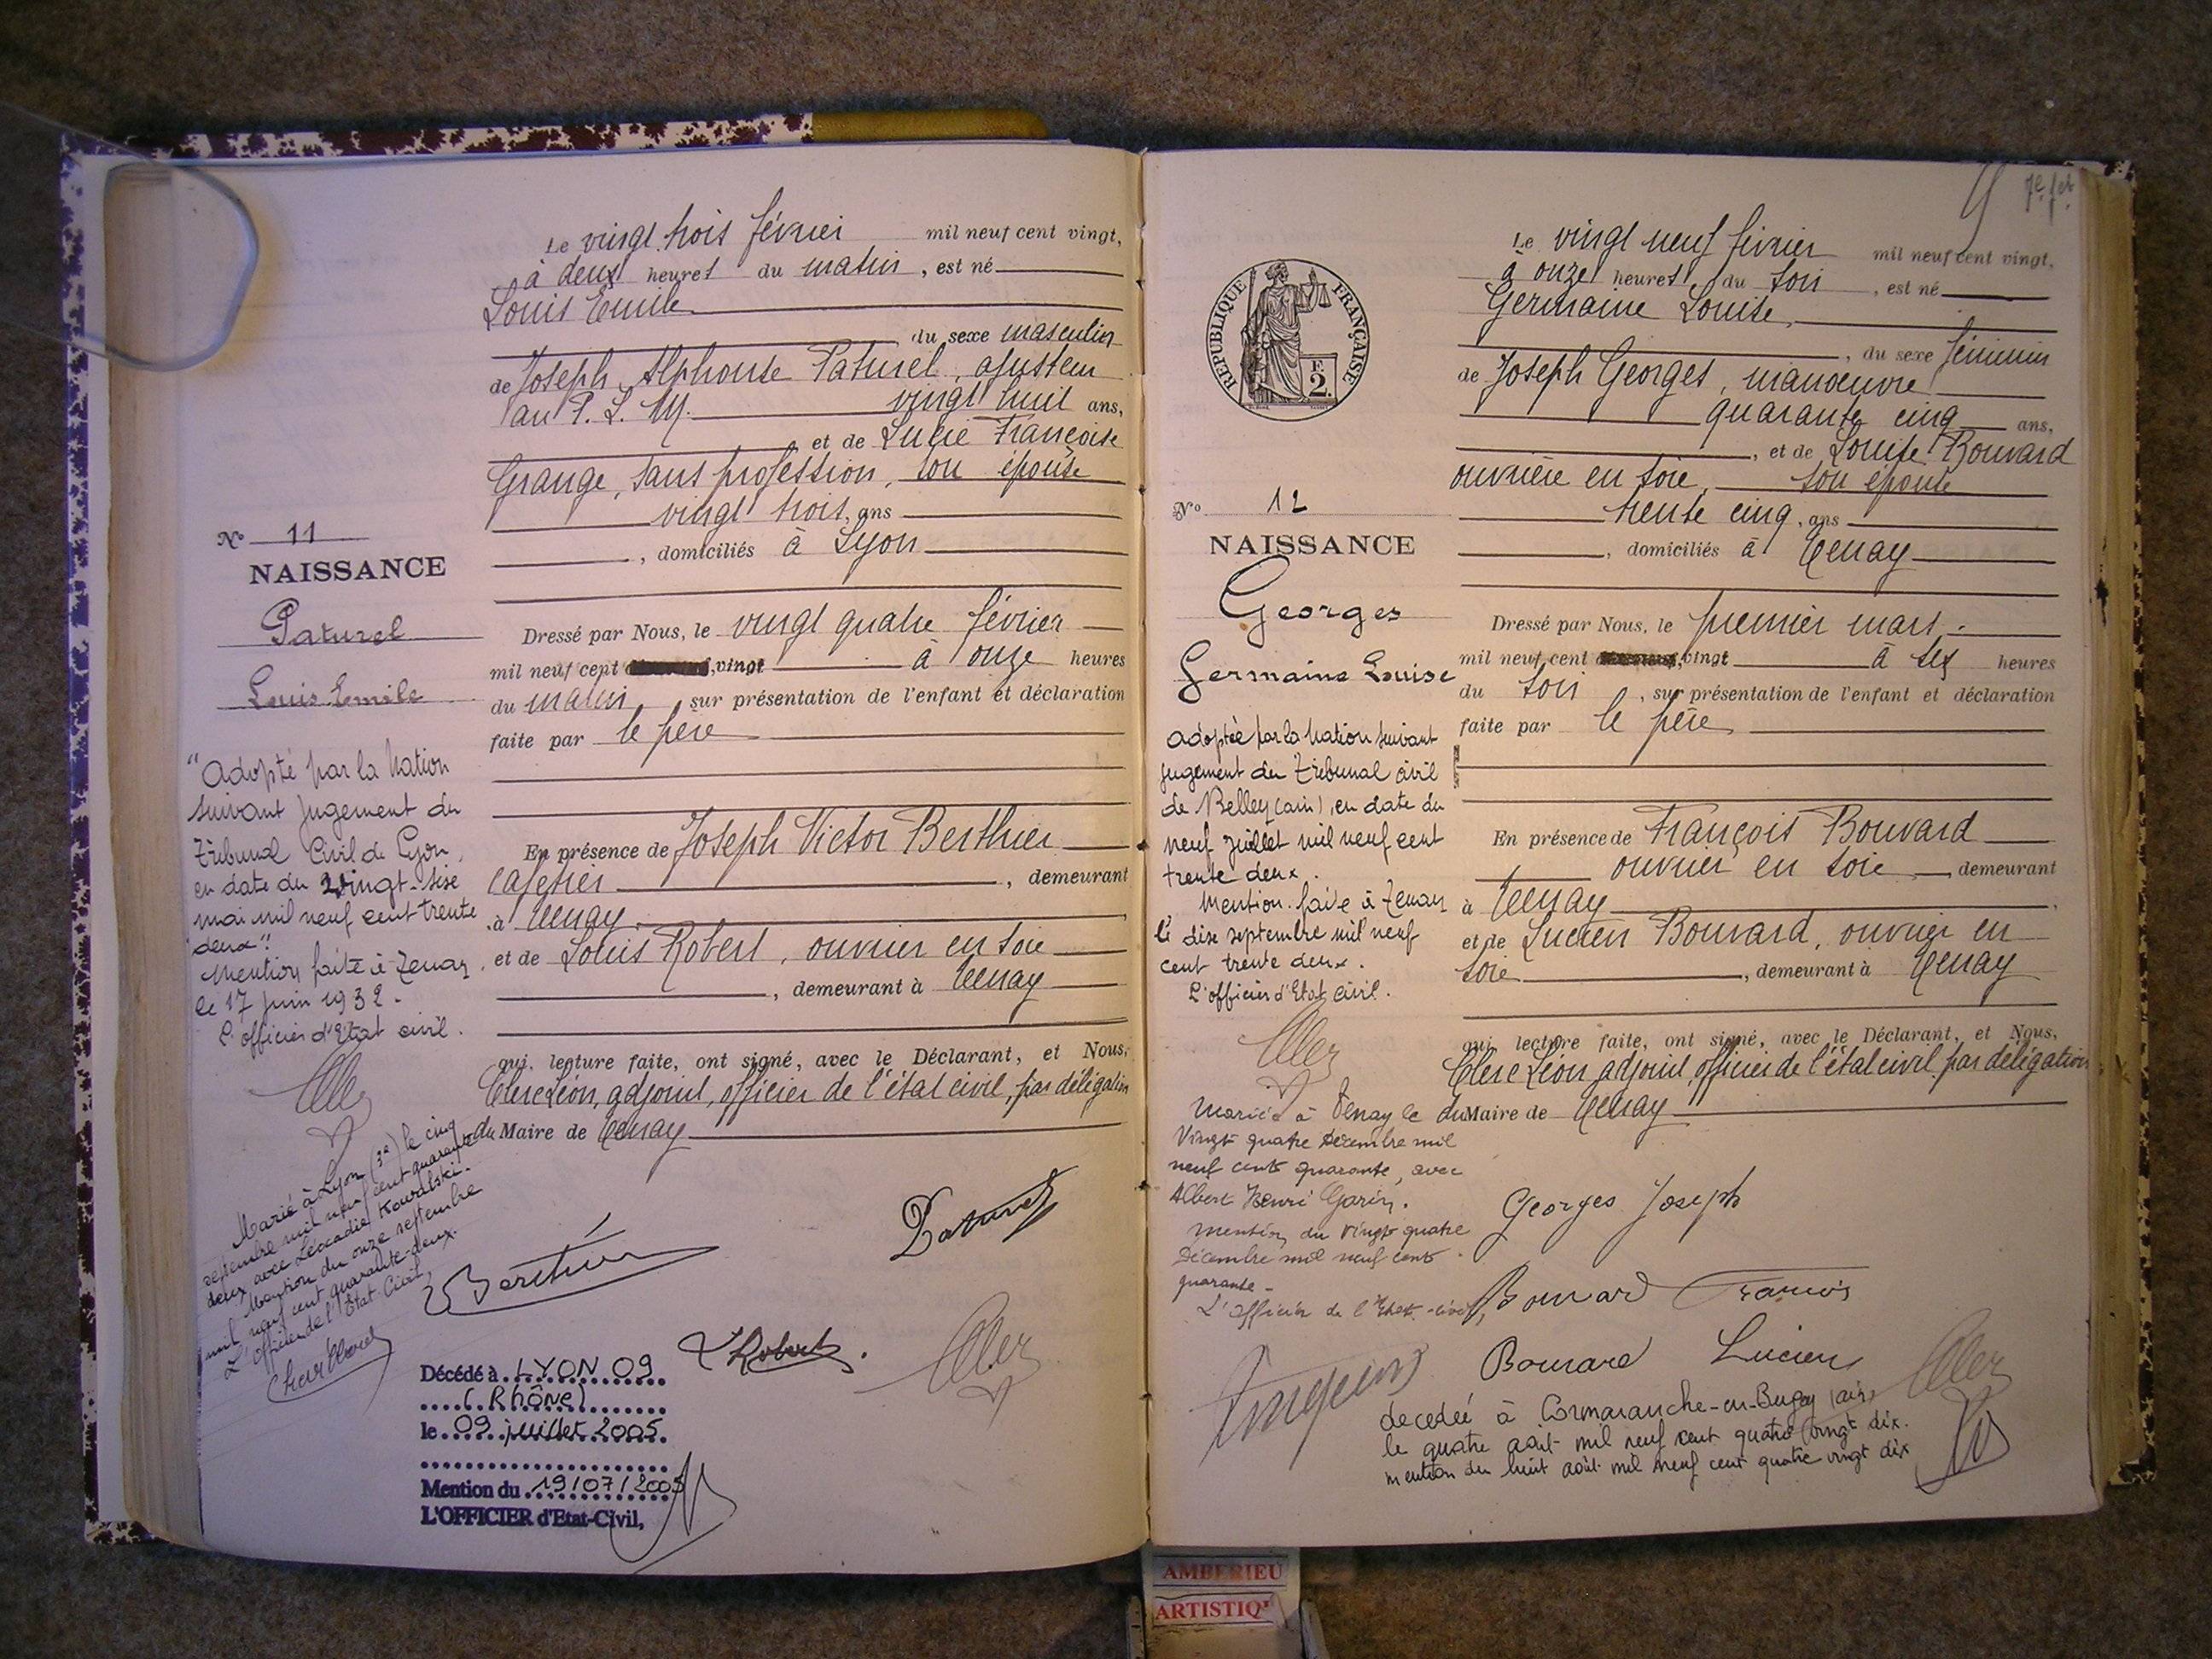 Le vingt trois février mil neuf cent vingt,
à deux heures du matin, est né
Louis Emile
du sexe masculin
de Joseph Alphonse Paturel, ajusteur
au P. L. M. vingt huit ans,
et de Lucie Françoise
Grange, sans profession, son épouse
vingt trois, ans
, domiciliés à Lyon
No 11
NAISSANCE
Paturel
Louis Emile
Dressé par Nous, le vingt quatre février
mil neuf cent vingt à onze heures
du matin sur présentation de l'enfant et déclaration
faite par le père
En présence de Joseph Victor Berthier
cafetier, demeurant
à Tenay
et de Louis Robert, ouvrier en soie
, demeurant à Tenay
qui, lecture faite, ont signé, avec le Déclarant, et Nous,
Clerc Léon, adjoint, officier de l'état civil, par délégation
du Maire de Tenay
"Adopté par la Nation
suivant jugement du
Tribunal Civil de Lyon,
en date du vingt-sise
mai mil neuf cent trente
deux".
Mention faite à Tenay
le 17 Juin 1932.
L'officier d'Etat civil.
Marié à Lyon (3e) le cinq
septembre mil neuf cent quarante
deux avec Léocadie Kowalski.
Mention du onze septembre
mil neuf cent quarante-deux.
L'Officier de l'Etat Civil,
Paturel
Berthier
L Robert.
Décédé à LYON 09
(Rhône)
le 09 juillet 2005
Mention du 19/07/2005
L'OFFICIER d'Etat-Civil,
7e fet
Le vingt neuf février mil neuf cent vingt,
à onze heures du soir, est né
Germaine Louise,
, du sexe féminin
de Joseph Georges, manœuvre
quarante cinq ans,
, et de Louise Bouvard
ouvrière en soie, son épouse
trente cinq, ans
, domiciliés à Tenay
RÉPUBLIQUE FRANÇAISE
F.
2.
No 12
NAISSANCE
Georges
Germaine Louise
Dressé par Nous, le premier mars
mil neuf cent vingt à six heures
du soir, sur présentation de l'enfant et déclaration
faite par le père
En présence de François Bouvard
ouvrier en soie demeurant
à Tenay
et de Lucien Bouvard, ouvrier en
soie, demeurant à Tenay
qui, lecture faite, ont signé, avec le Déclarant, et Nous,
Clerc Léon adjoint, officier de l'état civil par délégation
du Maire de Tenay
adoptée par la Nation suivant
jugement du Tribunal civil
de Belley (ain), en date du
neuf juillet mil neuf cent
trente deux.
Mention faite à Tenay
le dix septembre mil neuf
cent trente deux.
L'officier d'Etat civil.
Mariée à Tenay le
Vingt quatre Décembre mil
neuf cent quarante, avec
Albert Henri Garin.
Mention du vingt quatre
Décembre mil neuf cent
quarante -
L'Officier de l'Etat-civil,
Georges Joseph
Bouvard François
Bouvard Lucien
decedée à Cormaranche-en-Bugey (ain)
le quatre août mil neuf cent quatre vingt dix.
mention du huit août mil neuf cent quatre vingt dix
AMBERIEU
ARTISTIQ